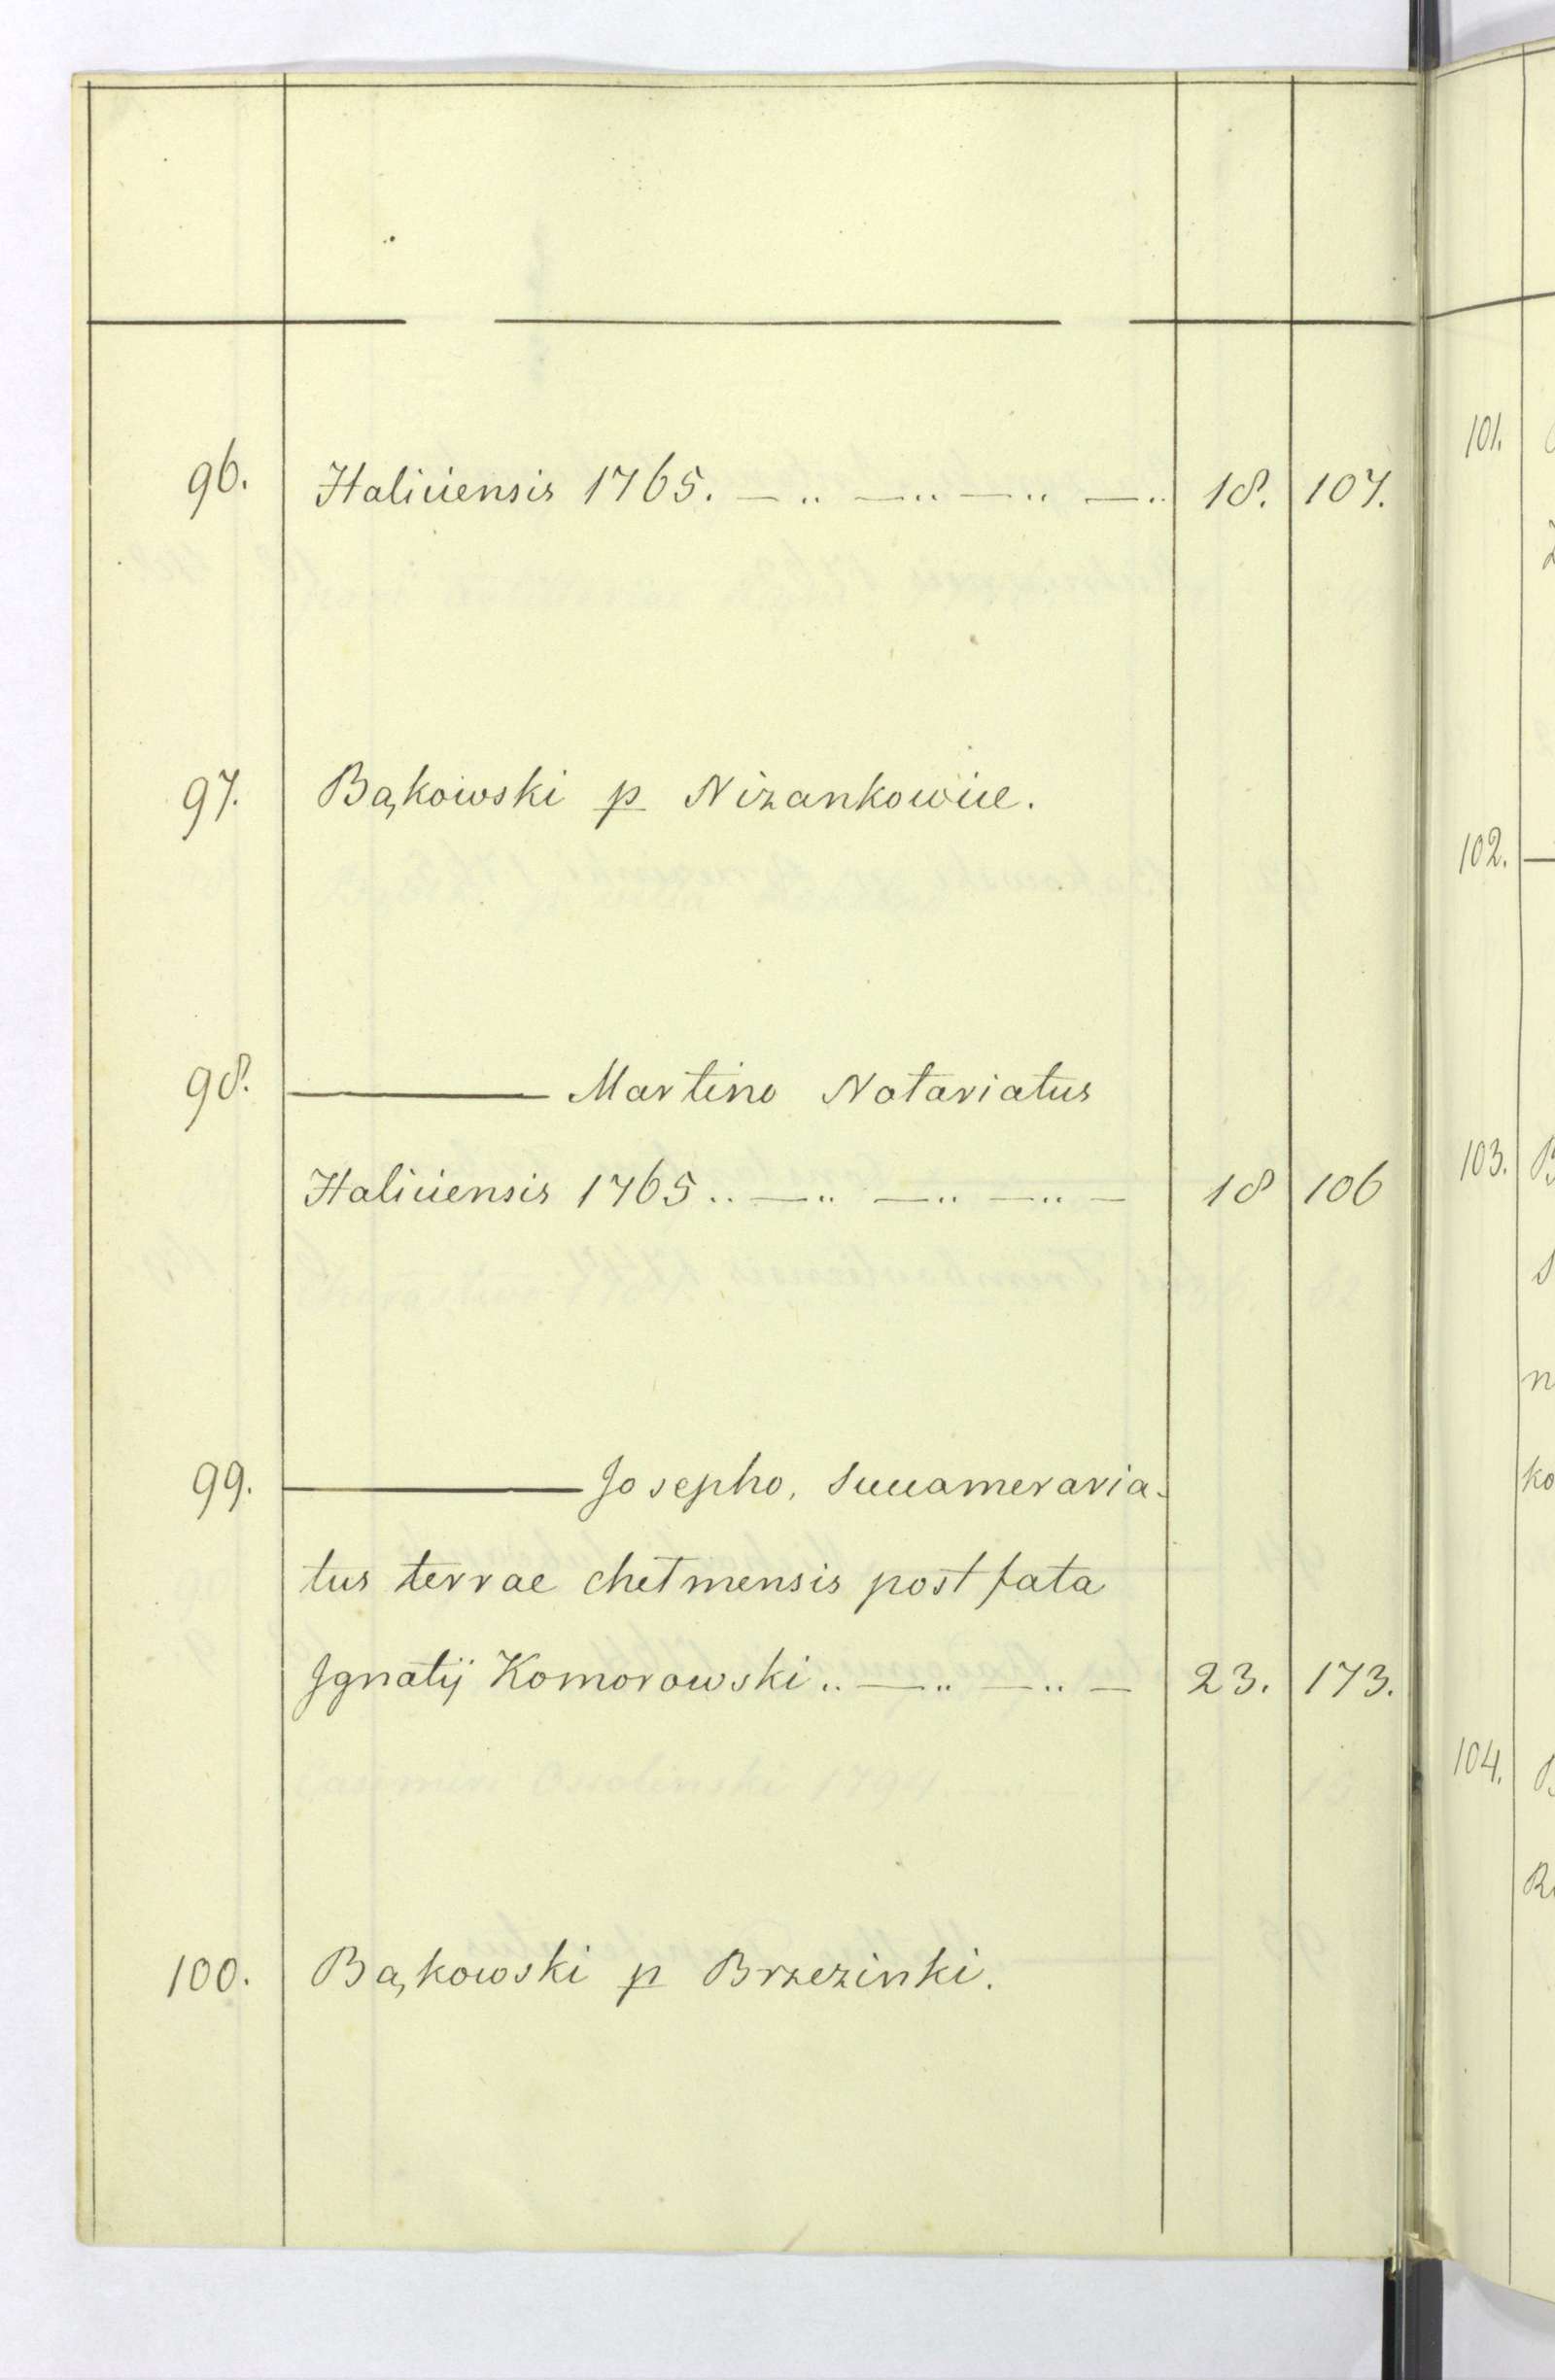 96. Haliciensis 1765. — .. — .. — .. — .. 18. 107.
97. Bąkowski p Nizankowice.
98. ——— Martino Notariatus
Haliciensis 1765 .. — .. — .. — .. — 18 106
99. ——— Josepho, Succameraria-
tus terrae chełmensis post fata
Ignatij Komorowski .. — .. — .. — 23. 173.
100. Bąkowski p Brzezinki.
101.
102. —
103. B
104.
ko